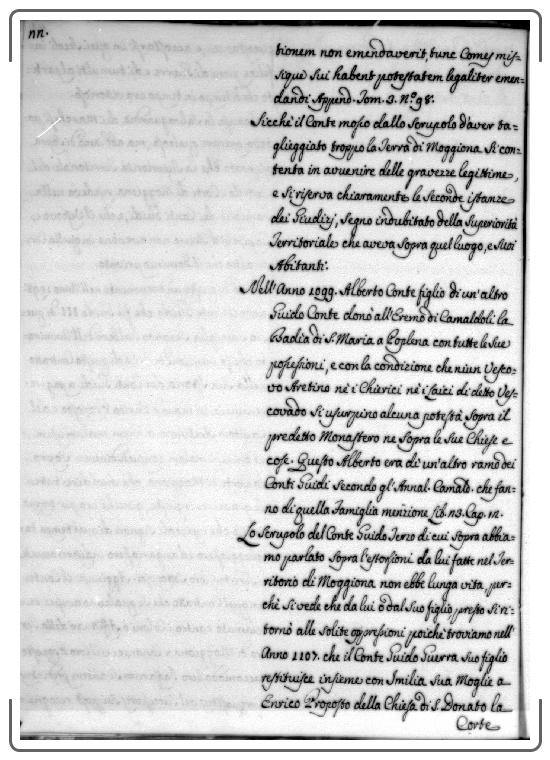 nn.
tionem non emendaverit, tunc Comes mis-
sique sui habent potestatem legaliter emen-
dandi Append. Tom. 3. N.º 98.
Sicchè il Conte mosso dallo Scrupolo d'aver ta-
glieggiato troppo la Terra di Moggiona. Si con-
tenta in avvenire delle gravezze legittime,
e Si riserva chiaramente le Seconde istanze
dei Giudizj, Segno indubitato della Superiorità
Territoriale che aveva Sopra quel luogo, e Suoi
Abitanti.
Nell'Anno 1099. Alberto Conte figlio di un'altro
Guido Conte donò all'Eremo di Camaldoli la
Badia di S. Maria a Poplena con tutte le Sue
possessioni, e con la condizione che niun Vesco-
vo Aretino nè i Chierici nè i laici di detto Ves-
covado Si usurpino alcuna potestà Sopra il
predetto Monastero ne Sopra le Sue Chiese e
cose. Questo Alberto era di un'altro ramo dei
Conti Guidi Secondo gl'Annal. Camald. che fan-
no di quella famiglia menzione Lib. n3. Cap. n.
Lo Scrupolo del Conte Guido Terzo di cui Sopra abbia-
mo parlato Sopra l'estorsioni da lui fatte nel Ter-
ritorio di Moggiona non ebbe lunga vita, per-
chè Si vede che da lui o dal Suo figlio presto Si ri-
tornò alle Solite oppressioni poichè troviamo nell'
Anno 1107. che il Conte Guido Guerra Suo figlio
restituisce insieme con Imilia Sua Moglie a
Enrico Proposto della Chiesa di S. Donato la
Corte